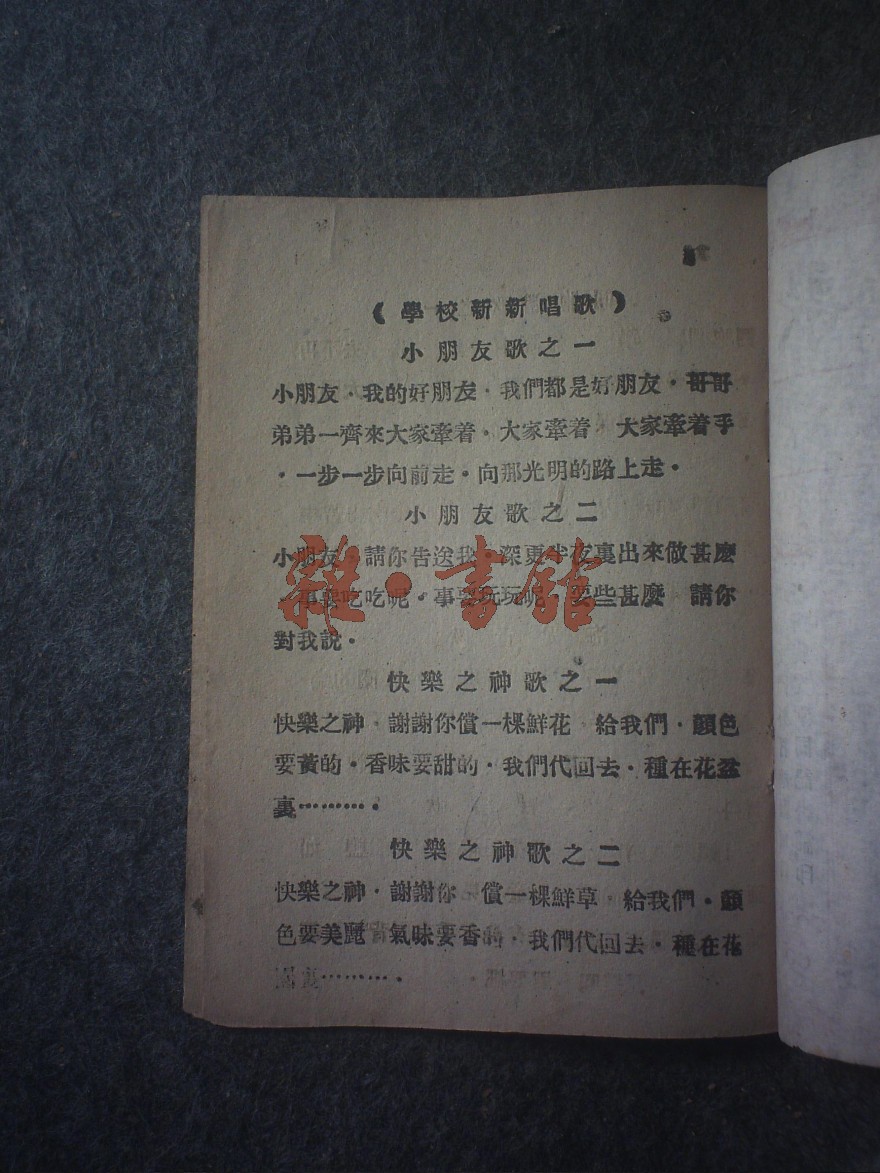 （學校新新唱歌）
小朋友歌之一
小朋友・我的好朋友・我們都是好朋友・哥哥
弟弟一齊來大家牽着・大家牽着　大家牽着手
・一步一步向前走・向那光明的路上走・
小朋友歌之二
小朋友・請你告送我・深更半夜裏出來做甚麽
事要吃吃呢・事要玩玩呢　要些甚麽　請你
對我說・
快樂之神歌之一
快樂之神・謝謝你償一棵鮮花　給我們・顏色
要黃的・香味要甜的・我們代回去・種在花盆
裏…………・
快樂之神歌之二
快樂之神・謝謝你　償一棵鮮草・給我們・顏
色要美麗　氣味要香的・我們代回去・種在花
裏…………・
雜・書館